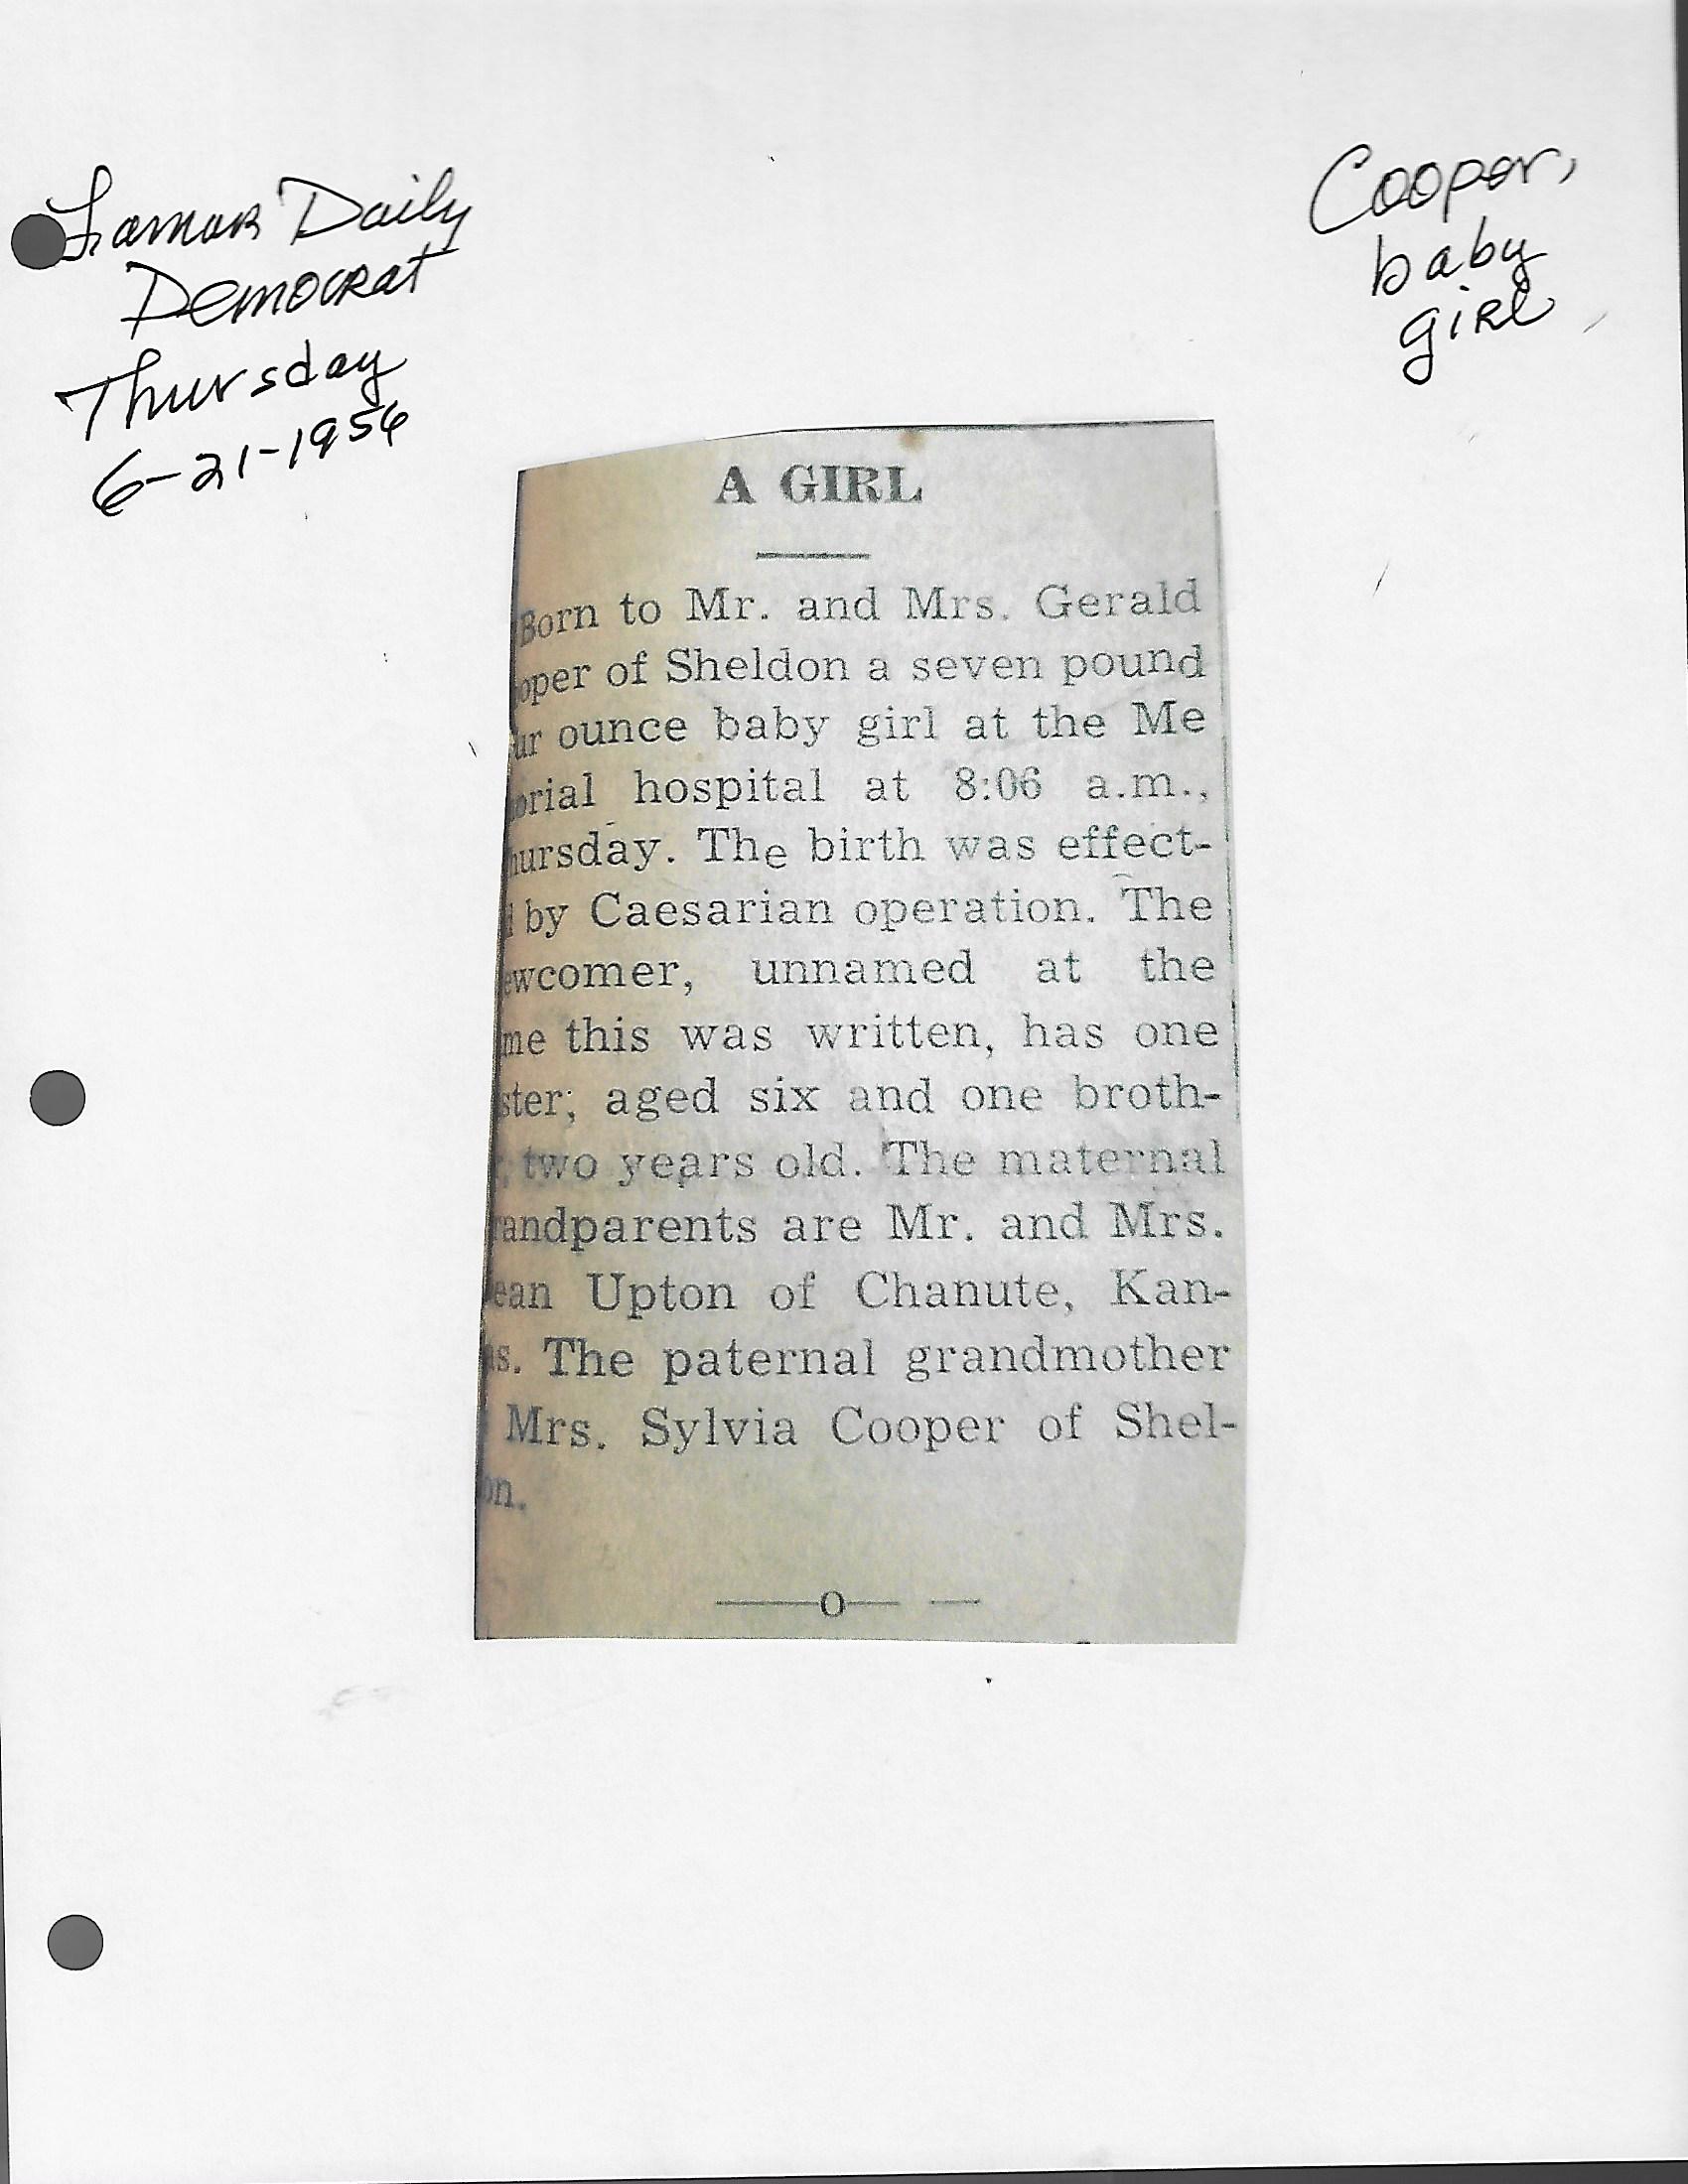 Lamar Daily
Democrat
Thursday
6-21-1956
Cooper,
baby
girl
A GIRL
Born to Mr. and Mrs. Gerald
oper of Sheldon a seven pound
ur ounce baby girl at the Me
orial hospital at 8:06 a.m.,
hursday. The birth was effect-
d by Caesarian operation. The
ewcomer, unnamed at the
me this was written, has one
ster; aged six and one broth-
r, two years old. The maternal
randparents are Mr. and Mrs.
ean Upton of Chanute, Kan-
as. The paternal grandmother
Mrs. Sylvia Cooper of Shel-
on.
—o— —